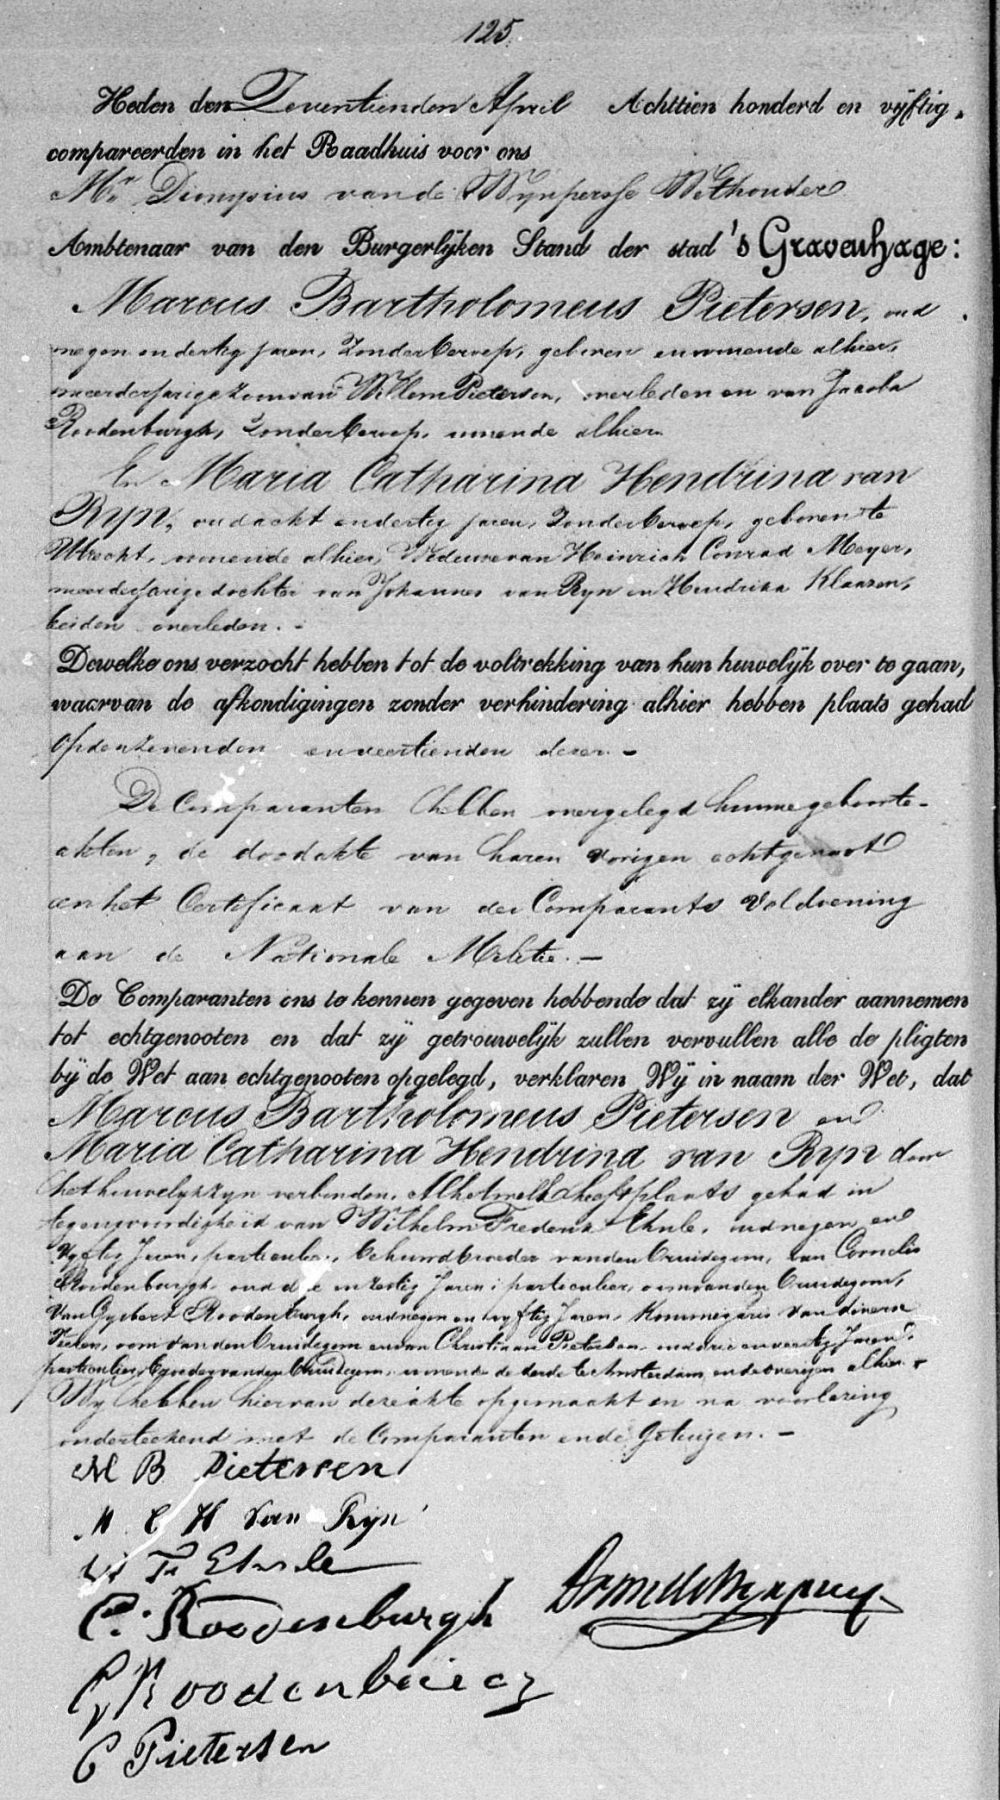 125.
Heden den Zeventienden April Achttien honderd en vijftig,
compareerden in het Raadhuis voor ons
Mr. Dionysius van de Wijnpersse Wethouder
Ambtenaar van den Burgerlijken Stand der stad 's Gravenhage:
Marcus Bartholomeus Pietersen, oud
negen en dertig jaren, zonder beroep, geboren en wonende alhier,
meerderjarige zoon van Willem Pietersen, overleden en van Jacoba
Roodenburgh, zonder beroep, wonende alhier
En Maria Catharina Hendrina van
Ryn, oud acht en dertig jaren, zonder beroep, geboren te
Utrecht, wonende alhier, Weduwe van Heinrich Conrad Meyer,
meerderjarige dochter van Johannes van Ryn en Hendrika Klaasen,
beiden overleden. -
Dewelke ons verzocht hebben tot de voltrekking van hun huwelijk over te gaan,
waarvan de afkondigingen zonder verhindering alhier hebben plaats gehad
op den zevenden en veertienden dezer. -
De Comparanten hebben overgelegd hunne geboorte-
akten, de doodakte van haren vorigen echtgenoot
en het Certificaat van des Comparants Voldoening
aan de Nationale Militie. -
De Comparanten ons te kennen gegeven hebbende dat zij elkander aannemen
tot echtgenooten en dat zij getrouwelijk zullen vervullen alle de pligten
bij de Wet aan echtgenooten opgelegd, verklaren Wij in naam der Wet, dat
Marcus Bartholomeus Pietersen en
Maria Catharina Hendrina van Ryn door
het huwelijk zyn verbonden. Al hetwelk heeft plaats gehad in
tegenwoordigheid van Wilhelm Frederik Ehnle, oud negen en
vyftig Jaren, particulier, behuwdbroeder van den Bruidegom, van Cornelis
Roodenburgh oud drie en zestig Jaren, particulier, oom van den Bruidegom,
van Gysbert Roodenburgh, oud negen en vyftig Jaren, Kommissaris van diverse
Veeren, oom van den Bruidegom en van Christiaan Pietersen oud drie en veertig Jaren,
particulier, broeder van den Bruidegom, wonende de derde te Amsterdam en de overigen alhier.
Wy hebben hiervan deze akte opgemaakt en na voorlezing
onderteekend met de Comparanten en de Getuigen. -
M B Pietersen
M C H van Ryn
W F Ehnle
C. Roodenburgh
G Roodenburg
C Pietersen